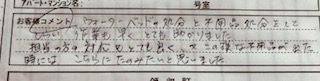 アパート・マンション名 号室
お客様コメント
ウォーターベッドの処分と不用品処分をして
もらい 作業も早く とても助かりました
担当の方の対応もとても良く、又この様な不用品が出た
時には こちらにたのみたいと思いました
領収証